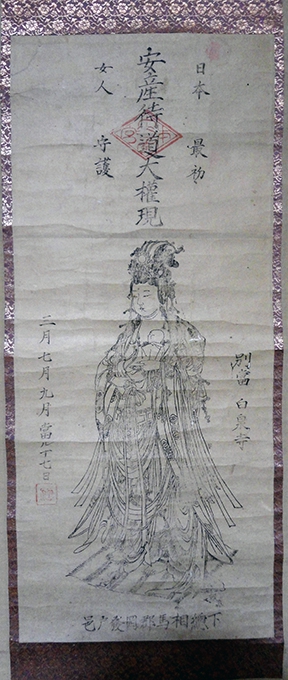 日本 最初
安産待道大權現
女人 守護
別當 白泉寺
二月七月九月當ル十七日
下總相馬郡岡發戸邑